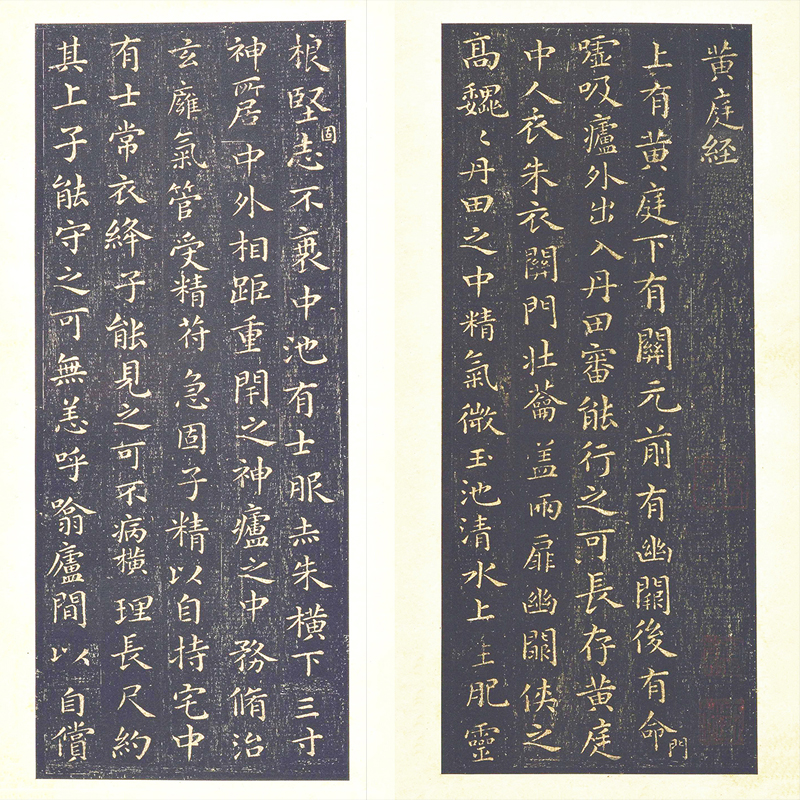 黄庭経
上有黄庭下有關元前有幽闕後有命門
嘘吸廬外出入丹田審能行之可長存黄庭
中人衣朱衣關門壮蘥盖兩扉幽闕侠之
高魏〻丹田之中精氣微玉池清水上生肥靈
根堅固志不衰中池有士服赤朱横下三寸
神所居中外相距重閇之神廬之中務脩治
玄廱氣管受精苻急固子精以自持宅中
有士常衣絳子能見之可不病横理長尺約
其上子能守之可無恙呼噏廬間以自償